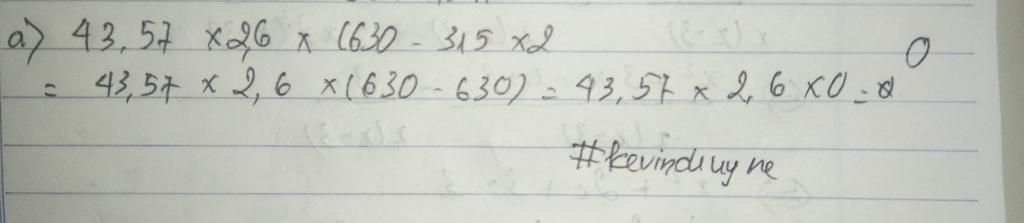 a) 43,57 x 2,6 x (630 - 315 x 2
= 43,57 x 2,6 x (630 - 630) = 43,57 x 2,6 x 0 = 0
#kevinduy ne